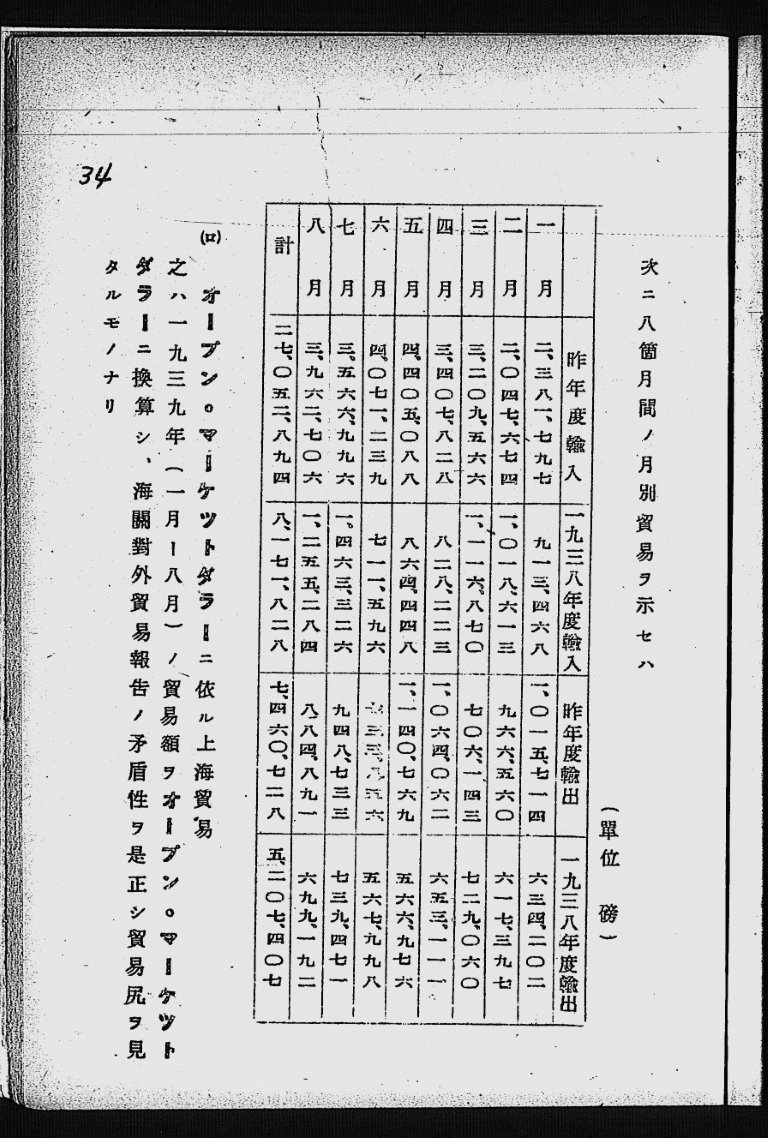 次ニ八箇月間ノ月別貿易ヲ示セハ
(單位 磅)
昨年度輸入 一九三八年度輸入 昨年度輸出 一九三八年度輸出
一月 二、三八一、七九七 九一三、四六八 一、〇一五、七一四 六三四、二〇二
二月 二、〇四七、六七四 一、〇一八、六一三 九六六、五六〇 六一七、三九七
三月 三、二〇九、五六六 一、一一六、八七〇 七〇六、一四三 七二九、〇六〇
四月 三、四〇七、八二八 八二八、二二三 一、〇六四、〇六二 六五三、一一一
五月 四、四〇五、〇八八 八六四、四四八 一、一四〇、七六九 五六六、九七六
六月 四、〇七一、二三九 七一一、五九六 七三三、八五六 五六七、九九八
七月 三、五六六、九九六 一、四六三、三二六 九四八、七三三 七三九、四七一
八月 三、九六二、七〇六 一、二五五、二八四 八八四、八九一 六九九、一九二
計 二七、〇五二、八九四 八、一七一、八二八 七、四六〇、七二八 五、二〇七、四〇七
(ロ) オープン。マーケツトダラーニ依ル上海貿易
之ハ一九三九年(一月ー八月)ノ貿易額ヲオープン。マーケツト
ダラーニ換算シ、海關對外貿易報告ノ矛盾性ヲ是正シ貿易尻ヲ見
タルモノナリ
34